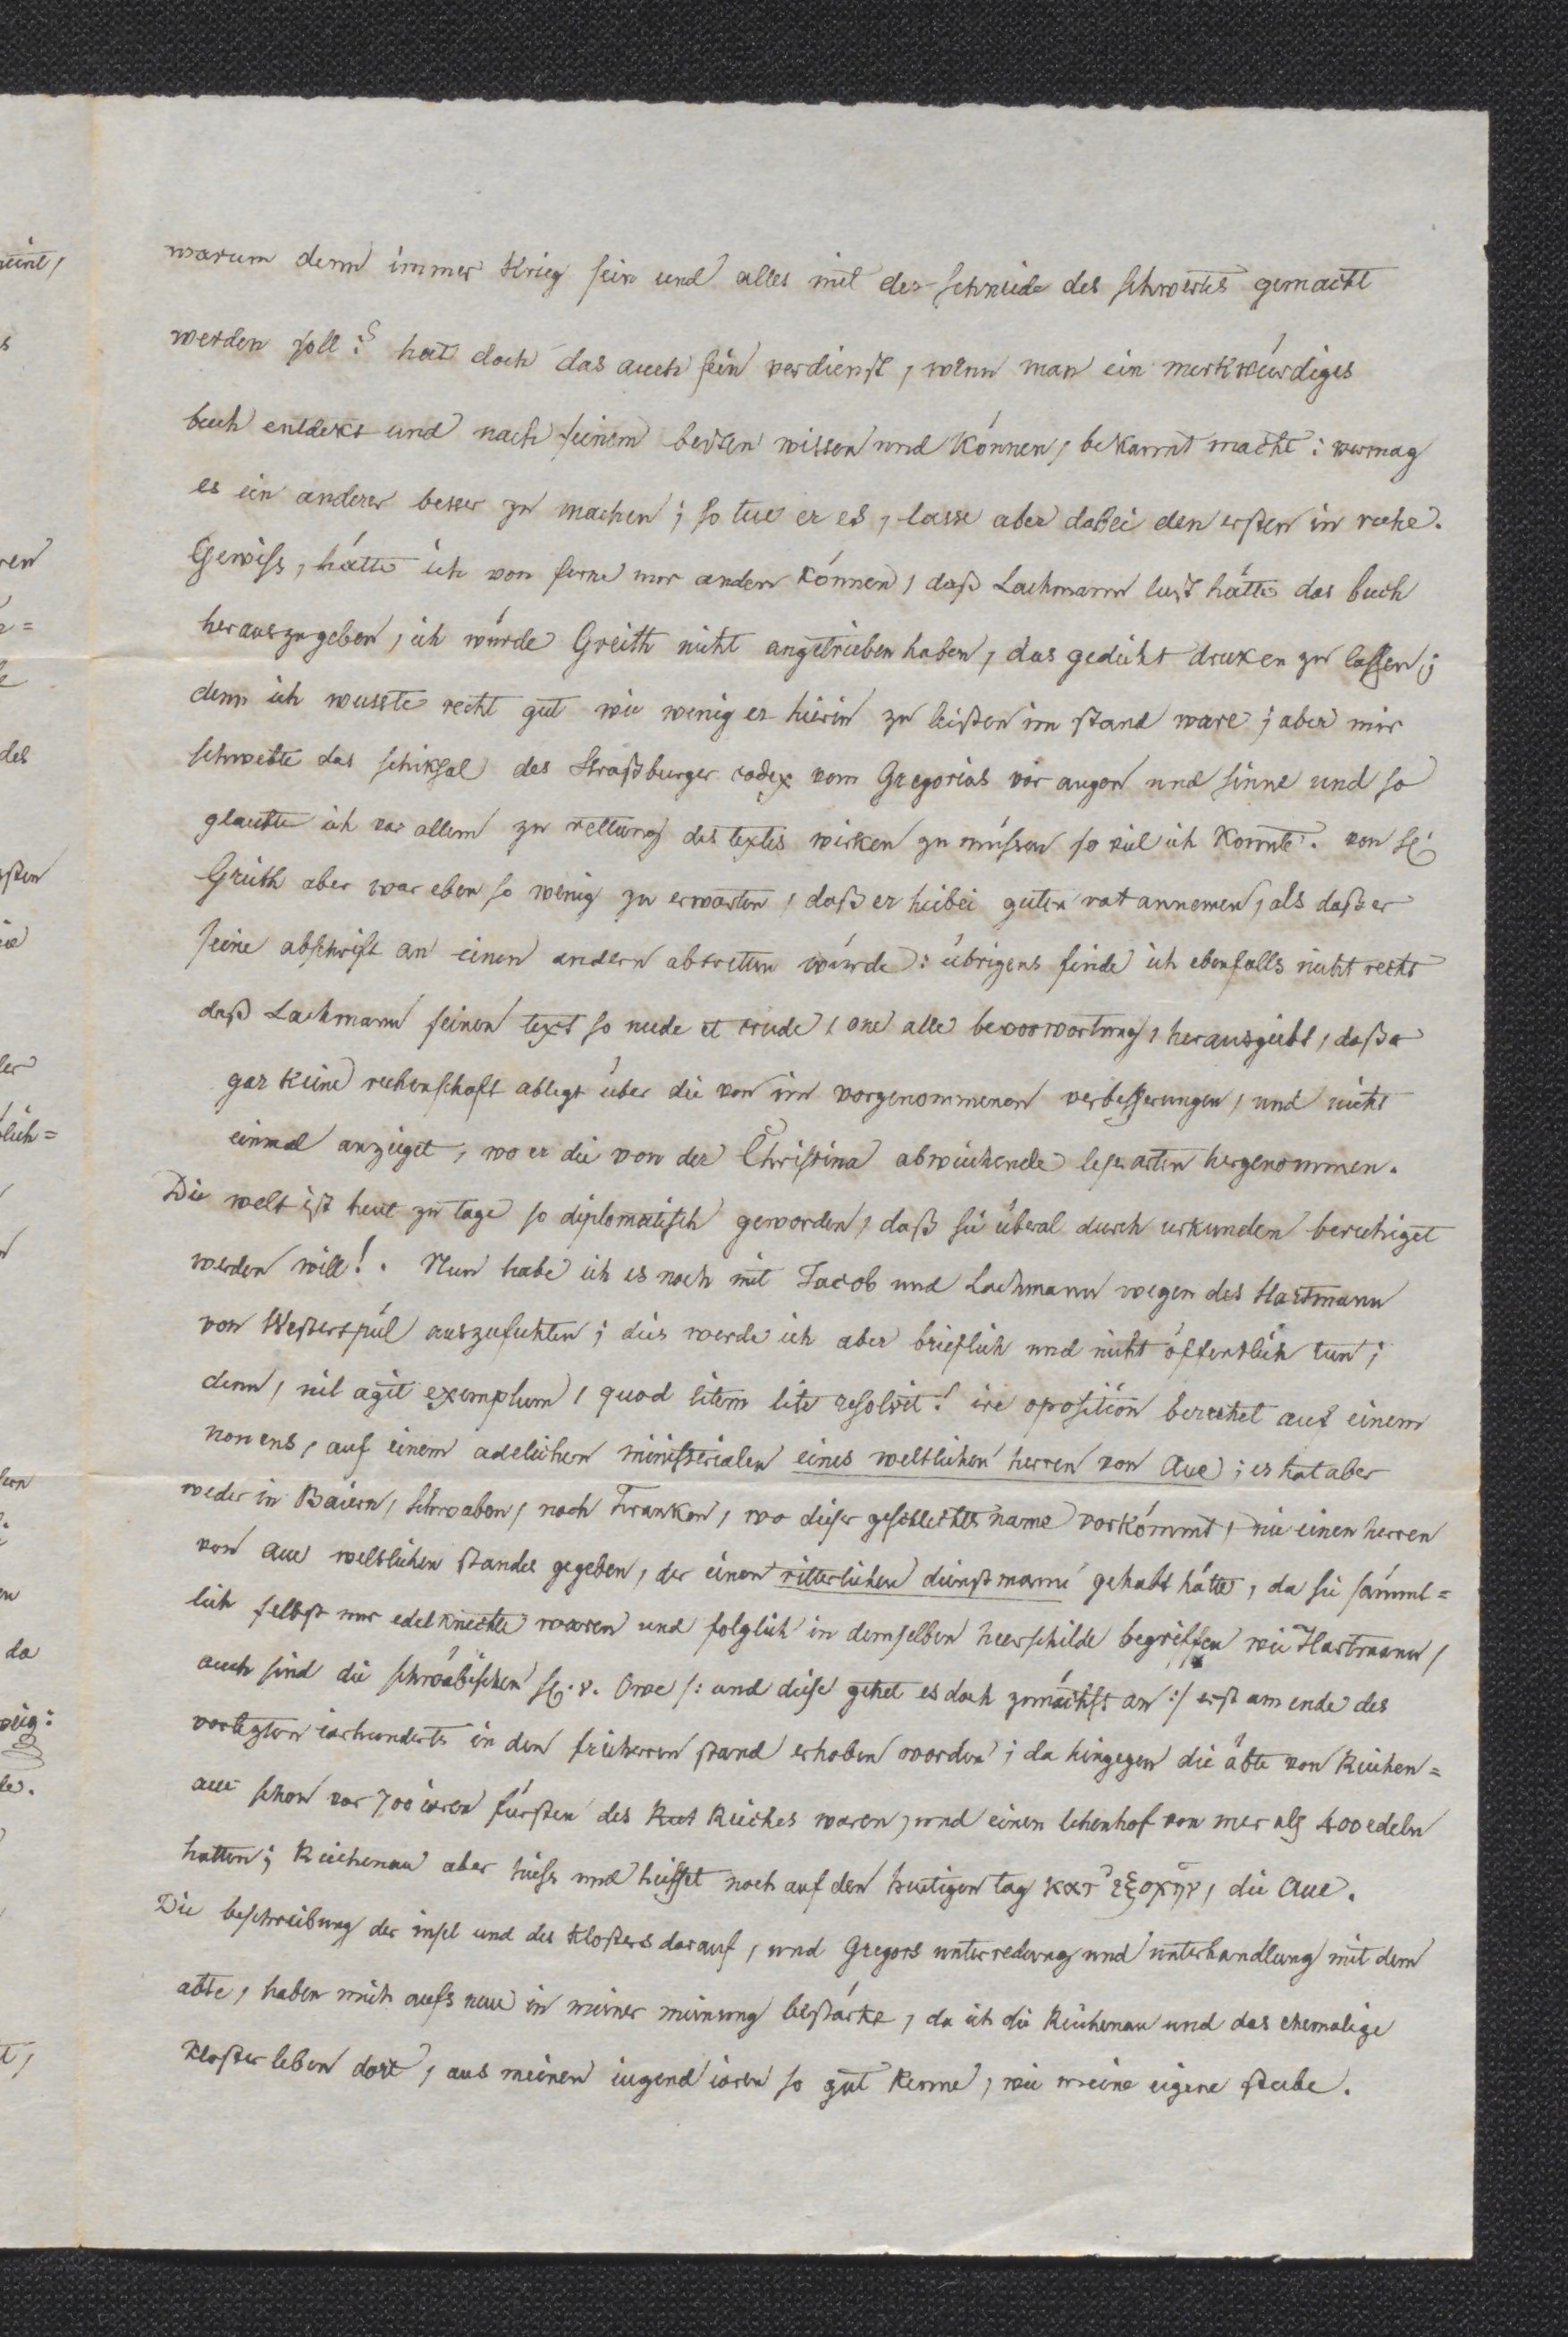 warum denn immer Krieg sein und alles mit der schneide des schwertes gemacht
werden soll? hat doch das auch sein verdienst, wenn man ein merkwürdiges
buch entdekt und nach seinem besten wissen und können, bekannt macht: vermag
es ein anderer besser zu machen; so tue er es, lasse aber dabei den ersten in ruhe.
Gewiß, hätte ich von ferne nur anden können, daß Lachmann lust hätte das buch
herauszugeben, ich würde Greith nicht angetrieben haben, das gedicht druken zu lassen;
denn ich wusste recht gut wie wenig er hierin zu leisten im stand ware; aber mir
schwebte das schiksal des Straßburger codex vom Gregorius vor augen und sinne und so
glaubte ich vor allem zu rettung des textes wirken zu müssen so viel ich konnte. von H.
Greith aber war eben so wenig zu erwarten, daß er hiebei guten rat annemen, als daß er
seine abschrift an einen andern abtretten würde: übrigens finde ich ebenfalls nicht recht
daß Lachmann seinen text so nude et crude, one alle bevorwortung, herausgiebt, daß er
gar keine rechenschaft ablegt über die von im vorgenommenen verbesserungen, und nicht
einmal anzeiget, wo er die von der Christina abweichende lesearten hergenommen.
Die welt ist heut zu tage so diplomatisch geworden, daß sie überal durch urkunden beruhiget
werden will!. Nun habe ich es noch mit Jacob und Lachmann wegen des Hartmann
von Westerspül auszufechten; dies werde ich aber brieflich und nicht öffentlich tun;
denn, nil agit exemplum, quod litem lite resolvit! ire oposition beruhet auf einem
non ens, auf einem adelichen ministerialen eines weltlichen herren von Aue; es hat aber
weder in Baiern, Schwaben, noch Franken, wo dieser geschlechts name vorkömmt, nie einen herren
von Aue weltlichen standes gegeben, der einen ritterlichen dienstmann gehabt hätte, da sie sämmt=
lich selbst nur edelknechte waren und folglich in demselben heerschilde begriffen wie Hartmann,
auch sind die schwäbischen H. v. Owe /: und diese gehet es doch zunächst an :/ erst am ende des
vorlezten iarhunderts in den freiherren stand erhoben worden; da hingegen die äbte von Reichen=
aue schon vor 700 iaren fürsten des Reichs waren, und einen lehenhof von mer als 400 edeln
hatten; Reichenau aber hiess und heisset noch auf den heutigen tag κατ' ἐξοχὴν, die Aue.
Die beschreibung der insel und des klosters darauf, und Gregors unterredung und unterhandlung mit dem
abte, haben mich aufs neue in meiner meinung bestärkt, da ich die Reichenau und das ehemalige
klosterleben dort, aus meinen iugend iaren so gut kenne, wie meine eigene stube.